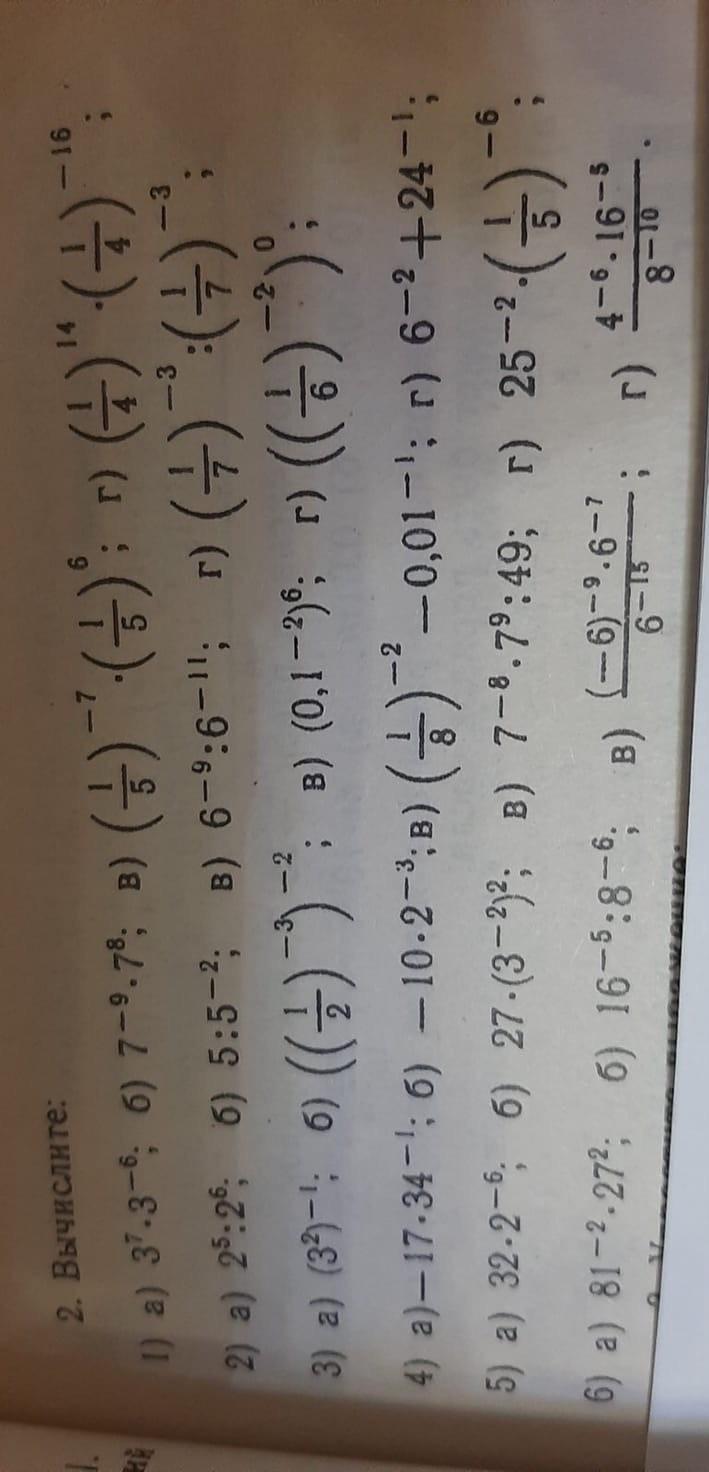 2. Вычислите:
1) а) 3⁷·3⁻⁶; б) 7⁻⁹·7⁸; в) (1/5)⁻⁷·(1/5)⁶; г) (1/4)¹⁴·(1/4)⁻¹⁶;
2) а) 2⁵:2⁶; б) 5:5⁻²; в) 6⁻⁹:6⁻¹¹; г) (1/7)⁻³:(1/7)⁻³;
3) а) (3²)⁻¹; б) ((1/2)⁻³)⁻²; в) (0,1⁻²)⁶; г) ((1/6)⁻²)⁰;
4) а) −17·34⁻¹; б) −10·2⁻³; в) (1/8)⁻² −0,01⁻¹; г) 6⁻²+24⁻¹;
5) а) 32·2⁻⁶; б) 27·(3⁻²)²; в) 7⁻⁸·7⁹:49; г) 25⁻²·(1/5)⁻⁶;
6) а) 81⁻²·27²; б) 16⁻⁵:8⁻⁶; в) (−6)⁻⁹·6⁻⁷/6⁻¹⁵; г) 4⁻⁶·16⁻⁵/8⁻¹⁰.